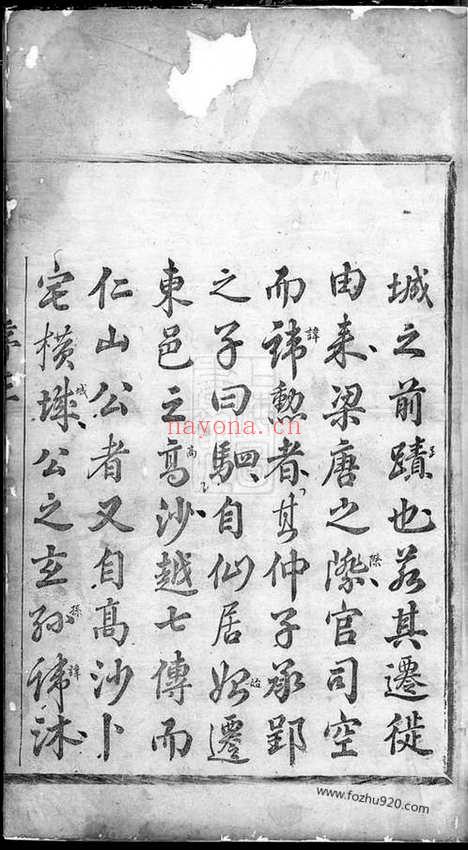 城之前蹟也若其遷徙
由来梁唐之際官司空
而諱勲者其仲子承郢
之子曰駟自仙居始遷
東邑之高沙越七傳而
仁山公者又自高沙卜
宅橫城公之玄孫諱沐
nayona.cn
www.fozhu920.com